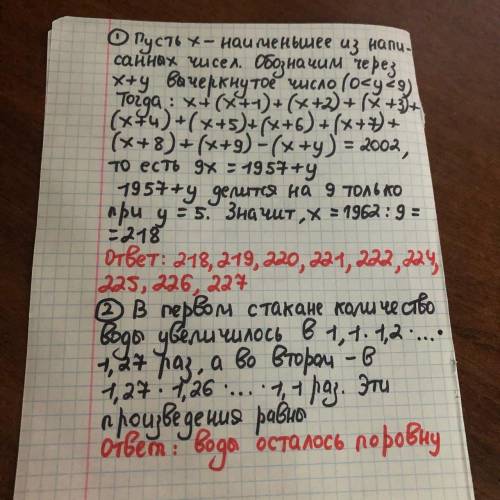 ① Пусть x – наименьшее из напи-
санных чисел. Обозначим через
x+y вычеркнутое число (0<y<9)
Тогда: x+(x+1)+(x+2)+(x+3)+
(x+4)+(x+5)+(x+6)+(x+7)+
(x+8)+(x+9)-(x+y)=2002,
то есть 9x=1957+y
1957+y делится на 9 только
при y=5. Значит, x=1962:9=
=218
Ответ: 218, 219, 220, 221, 222, 224,
225, 226, 227
② В первом стакане количество
воды увеличилось в 1,1·1,2·...·
1,27 раз, а во втором – в
1,27·1,26·...·1,1 раз. Эти
произведения равны
Ответ: воды осталось поровну